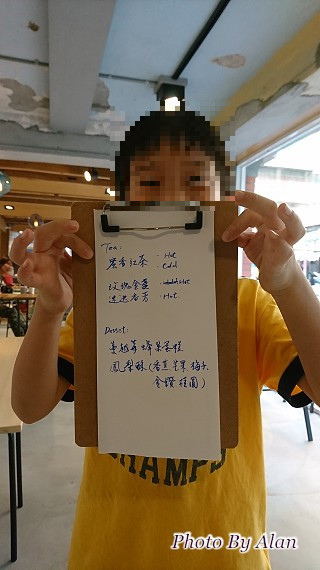 Tea:
蜜香紅茶 · Hot
· Cold
玫瑰金萱 · Hot
迷迭香芳 · Hot
Dessert:
蔓越莓蜂巢蛋糕
鳳梨酥(香蕉 芒果 梅子
金鑽 桂圓)
CHAMPS
Photo By Alan